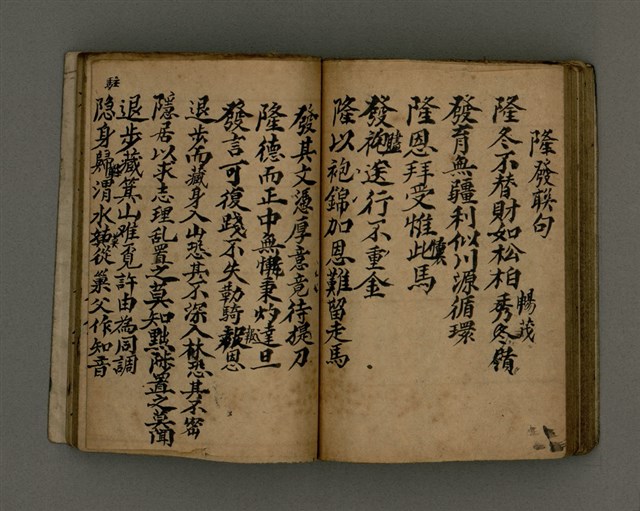 隆發联句
隆冬不替財如松柏秀冬嶺
暢茂
發育無疆利似川源循環
隆恩拜受惟此馬
發袍送行不重金
隆以袍錦加恩難留走馬
發其文憑厚意竟待提刀
隆德而正中無懈秉灼達旦
發言可復踐不失勒騎報恩
退步而藏身入山恐其不深入林恐其不密
隱居以求志理乱置之莫知黜陟置之莫聞
退步藏箕山唯覓許由為同調
隐身歸渭水 從巢父作知音
駐